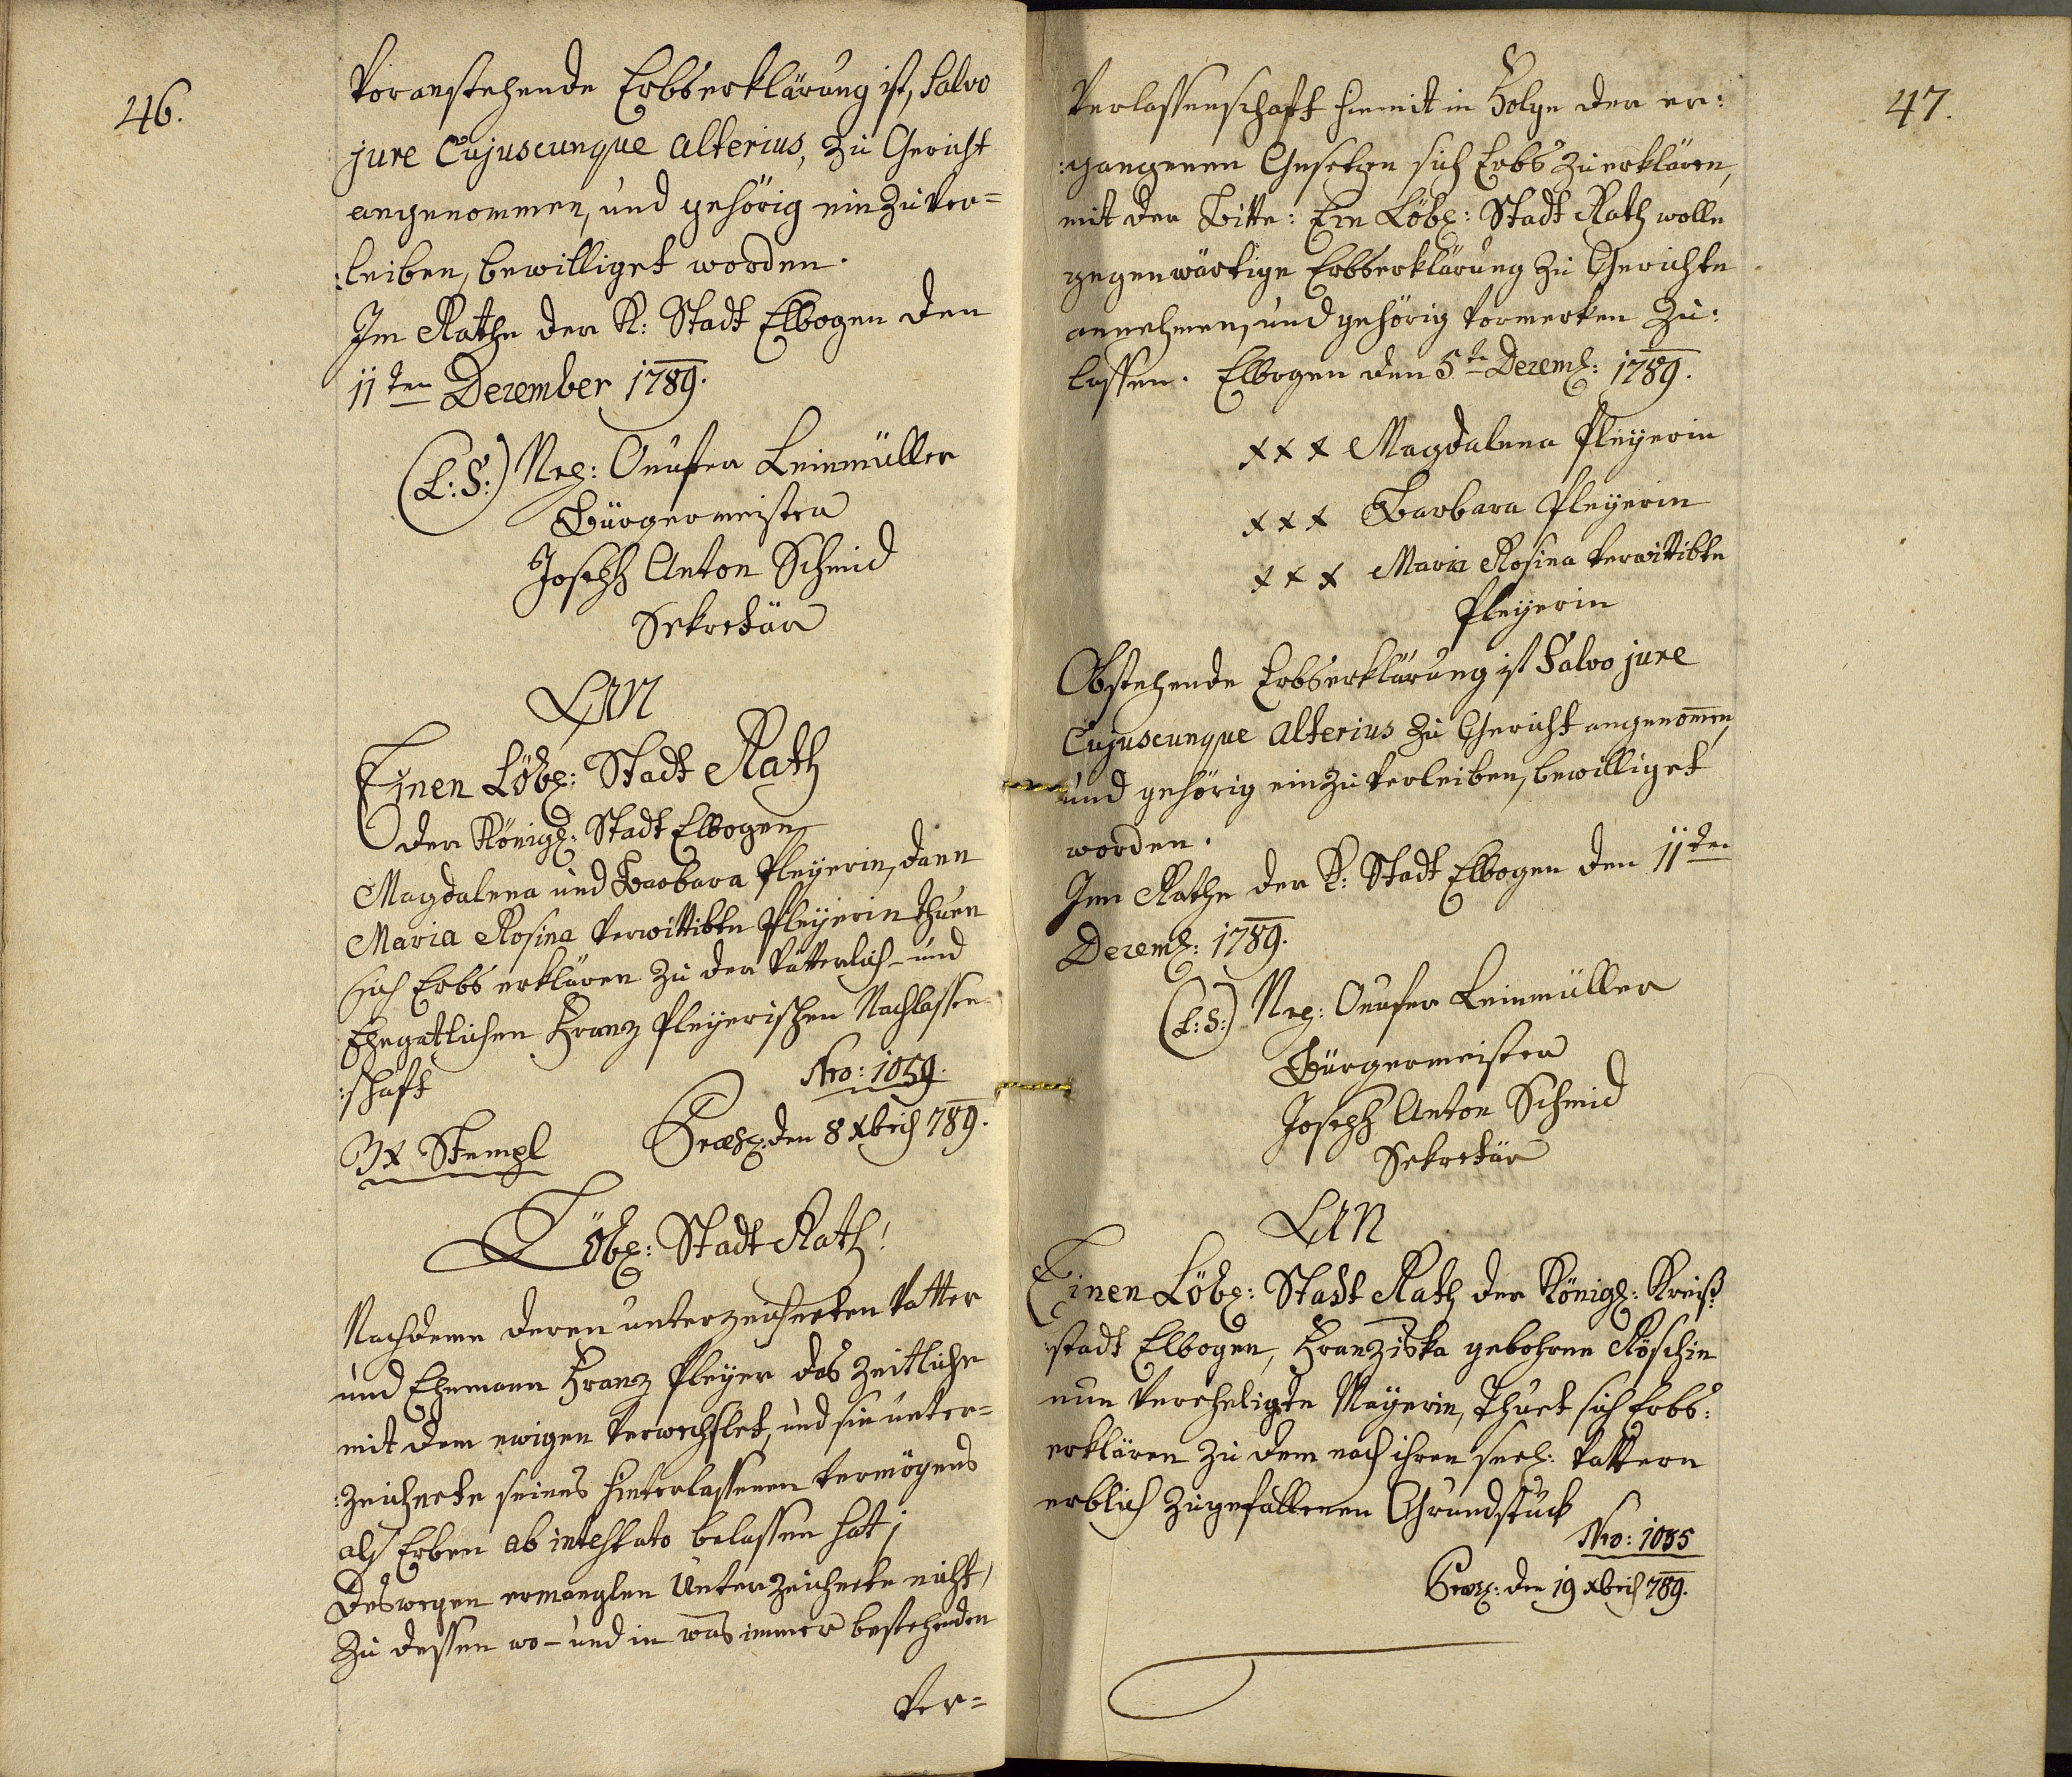 46.
Voranstehende Erbserklärung ist, Salvo
jure Cujuscunque alterius, zu Gericht
angenommen, und gehörig ein zu ver=
:leiben, bewilliget worden.
Im Rathe der K: Stadt Elbogen den
11ten Dezember 1789.
(L:S:) Onufer Leinmüller
Bürgermeister
Joseph Anton Schmid
Sekretär
An
Einen Löbl: Stadt Rath
der Königl: Stadt Elbogen
Magdalena und Barbara Pleyerin, dann
Maria Rosina verwittibte Pleyerin thuen
sich Erbs erklären zu der vätterlich- und
Ehegatlichen Franz Pleyerischen Nachlassen=
:schaft
Nro: 1059.
3x Stempl Præs: den 8 Xbris 789.
Löbl: Stadt Rath!
Nachdeme deren unterzeichneten Vatter
und Ehemann Franz Pleyer das Zeitliche
mit dem ewigen verwechslet, und sie unter=
:zeichnete seines hinterlassenen vermögens
als Erben ab intestato belassen hat;
Deswegen ermanglen Unterzeichnete nicht,
zu dessen wo- und in was immer bestehenden
Ver=
47.
Verlassenschaft hiemit in Folge der er:
:gangenen Gesetzen sich Erbs zu erklären,
mit der Bitte: Ein Löbl: Stadt Rath wolle
gegenwärtige Erbserklärung zu Gerichte
annehmen, und gehörig vormerken zu:
lassen. Elbogen den 5te Dezemb: 1789.
xxx Magdalena Pleyerin
xxx Barbara Pleyerin
xxx Maria Rosina verwittibte
Pleyerin
Obstehende Erbserklärung ist Salvo jure
Cujuscunque alterius zu Gericht angenom̄en,
und gehörig ein zu verleiben, bewilliget
worden.
Im Rathe der K: Stadt Elbogen den 11ten
Dezemb: 1789.
(L:S:) Onufer Leinmüller
Bürgermeister
Joseph Anton Schmid
Sekretär
An
Einen Löbl: Stadt Rath der Königl: Kreiß
:stadt Elbogen, Franziska gebohrne Röschin
nun verehligte Mayerin, Thuet sich Erbs:
erklären zu dem nach ihren seel: Vattern
erblich zugefallenen Grundstück
Nro: 1085
Præs: den 19 Xbris 789.